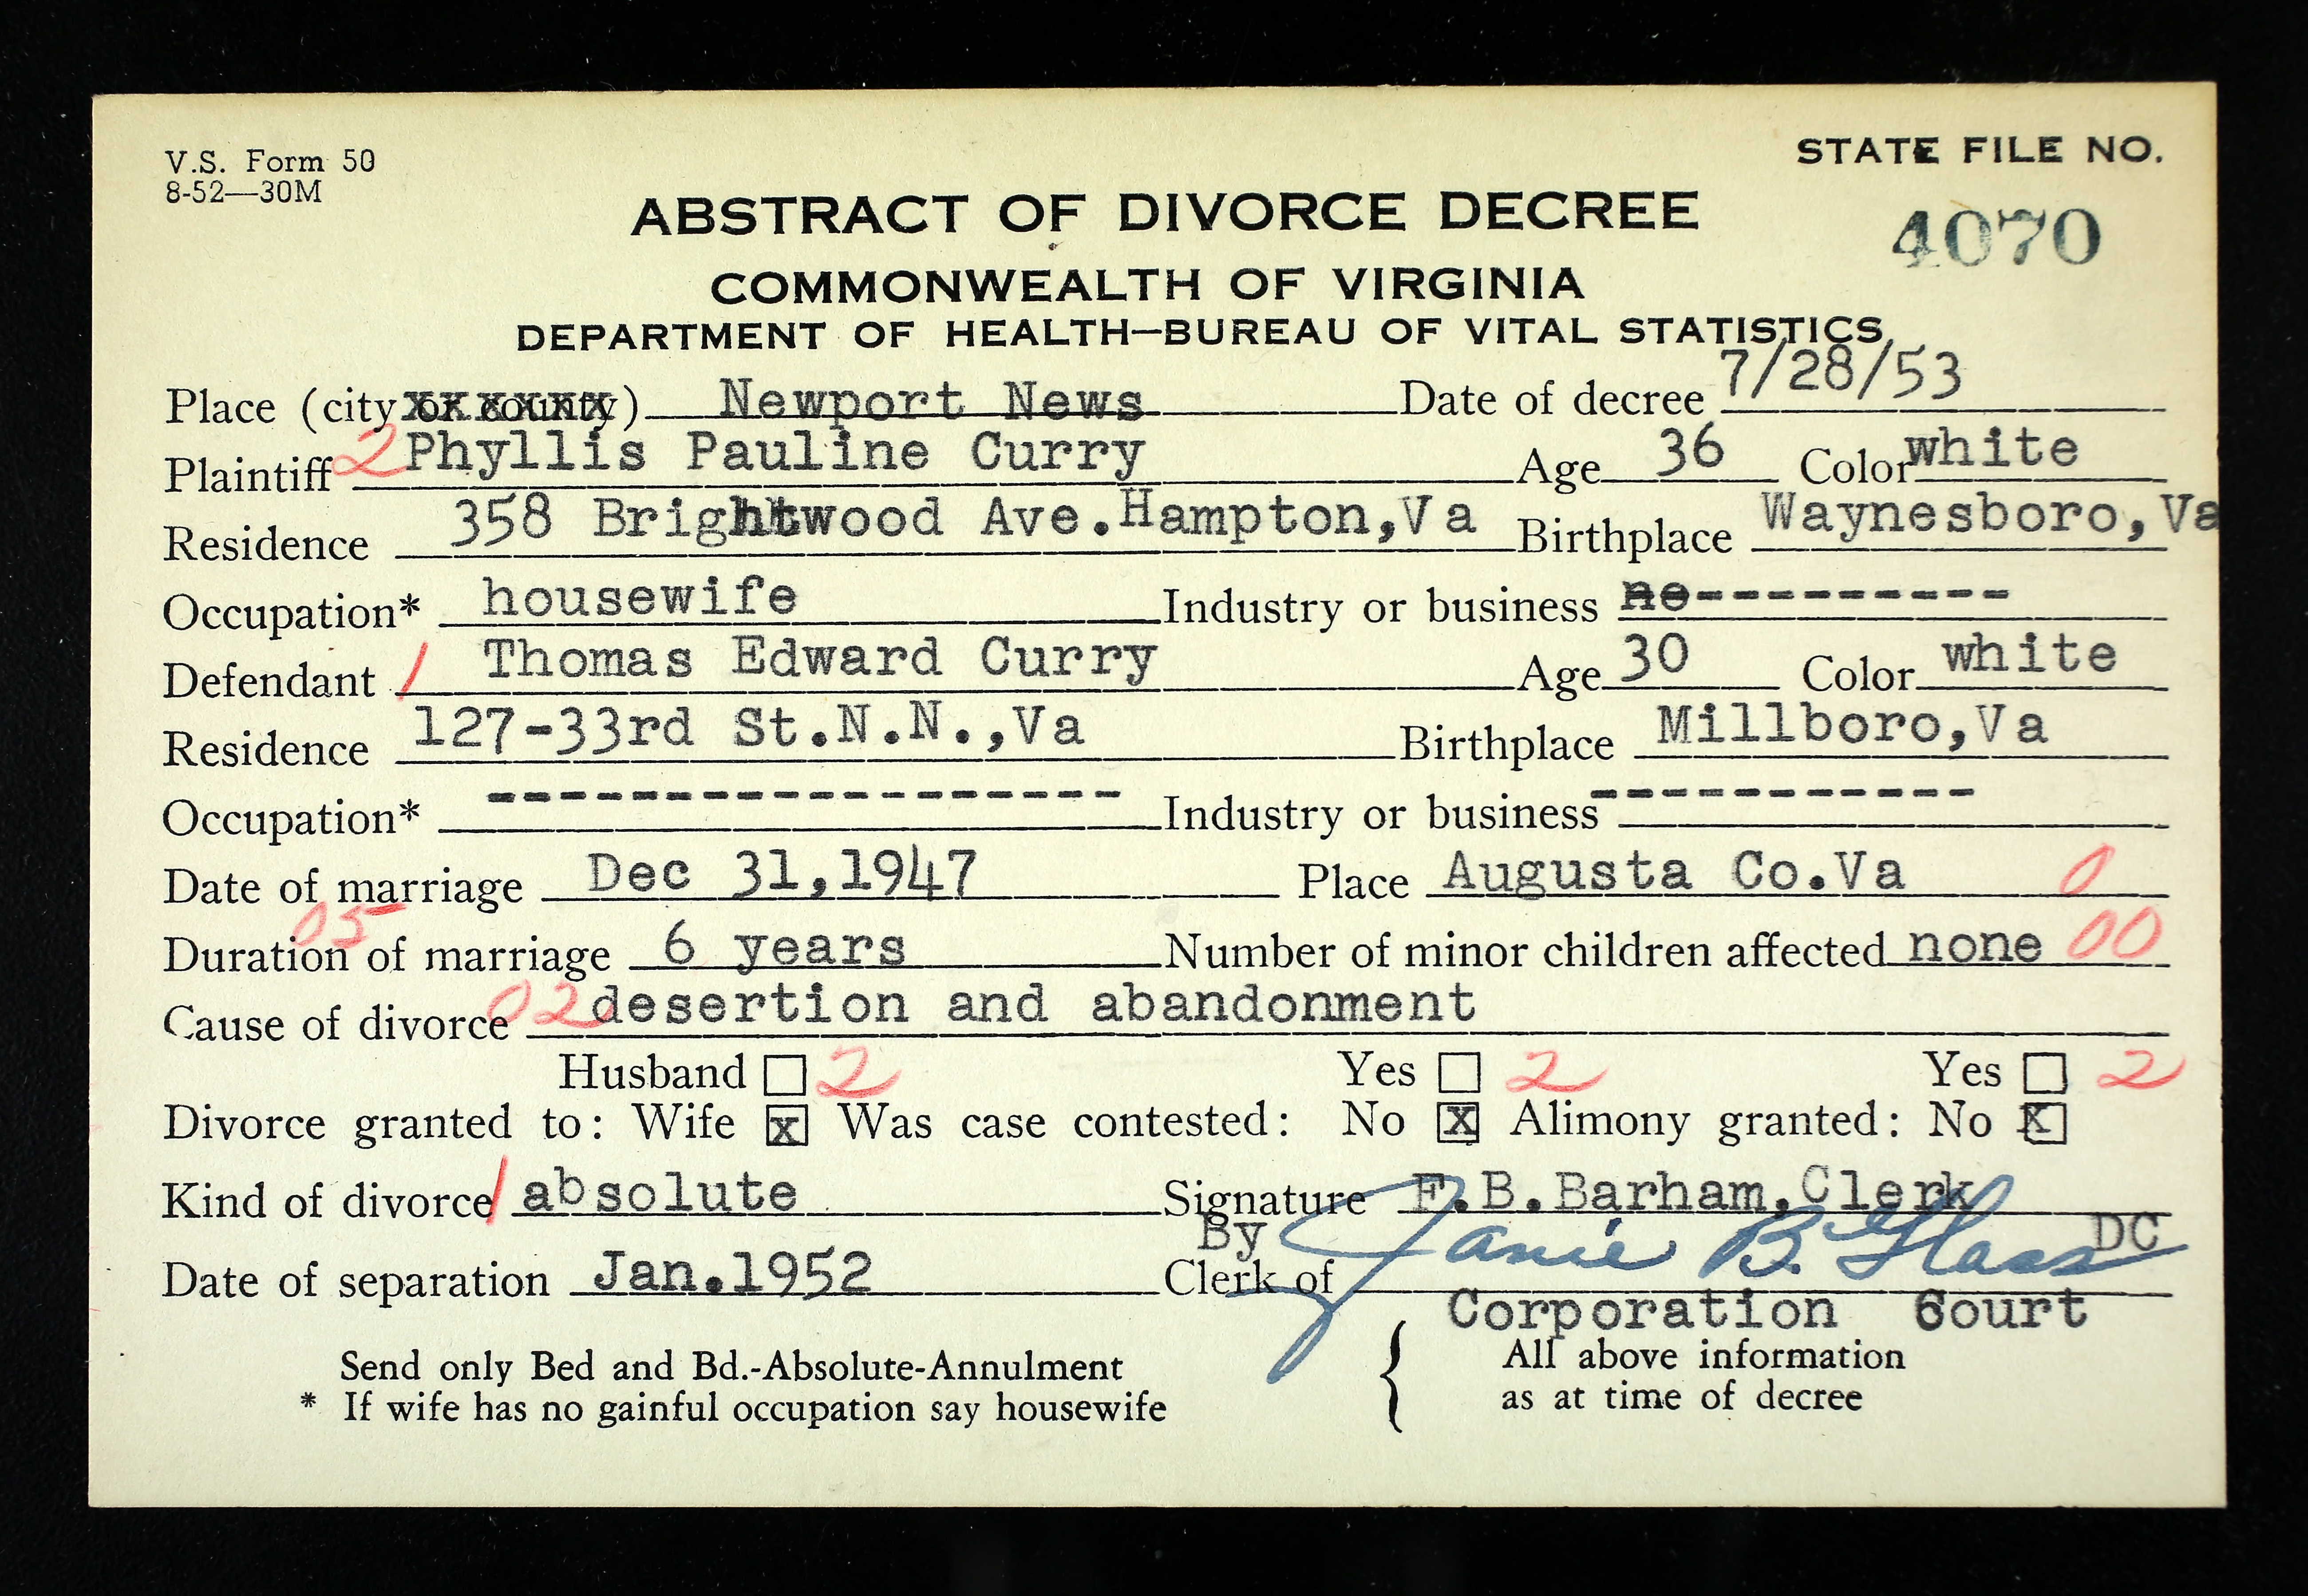 V.S. Form 50
8-52—30M
STATE FILE NO.
4070
ABSTRACT OF DIVORCE DECREE
COMMONWEALTH OF VIRGINIA
DEPARTMENT OF HEALTH—BUREAU OF VITAL STATISTICS
Place (city or county) Newport News Date of decree 7/28/53
Plaintiff 2 Phyllis Pauline Curry Age 36 Color white
Residence 358 Brightwood Ave.Hampton,Va Birthplace Waynesboro,Va
Occupation* housewife Industry or business ne----------
Defendant 1 Thomas Edward Curry Age 30 Color white
Residence 127-33rd St.N.N.,Va Birthplace Millboro,Va
Occupation* ------------------- Industry or business -----------
Date of marriage Dec 31,1947 Place Augusta Co.Va 0
05
Duration of marriage 6 years Number of minor children affected none 00
Cause of divorce 02 desertion and abandonment
Husband ☐ 2 Yes ☐ 2 Yes ☐ 2
Divorce granted to: Wife ☒ Was case contested: No ☒ Alimony granted: No ☒
Kind of divorce 1 absolute Signature F.B.Barham,Clerk
By Janie B. Glass DC
Date of separation Jan.1952 Clerk of
Corporation Court
Send only Bed and Bd.-Absolute-Annulment { All above information
* If wife has no gainful occupation say housewife as at time of decree